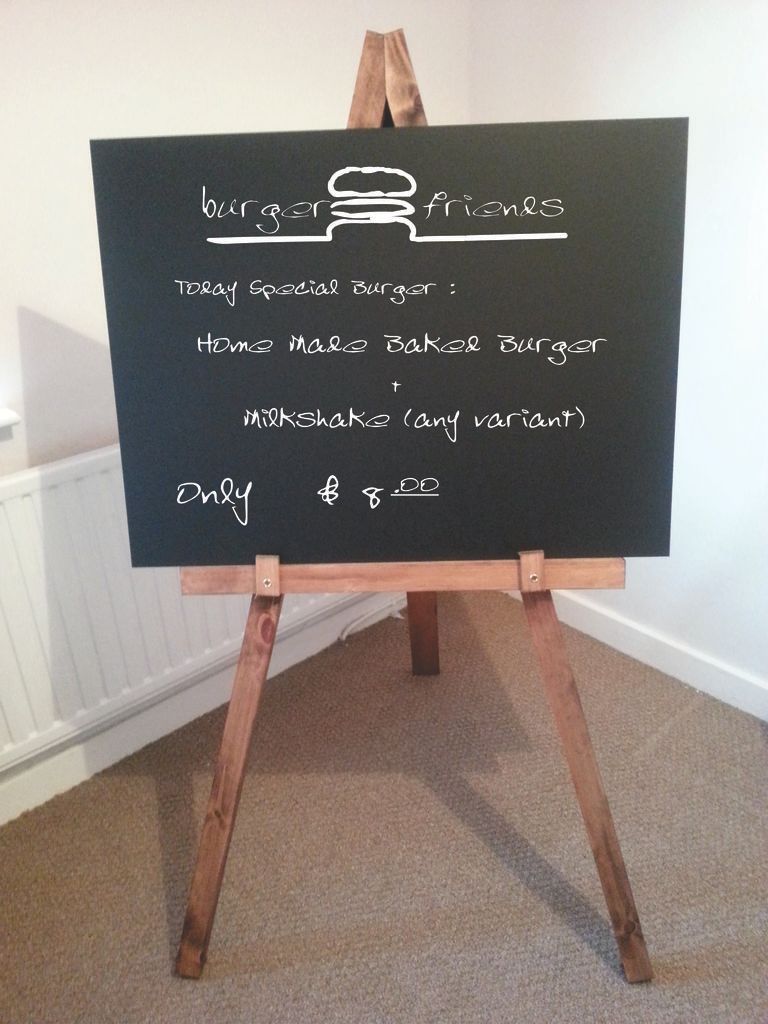 burger friends
Today Special Burger :
Home Made Baked Burger
+
Milkshake (any variant)
Only $ 8.00